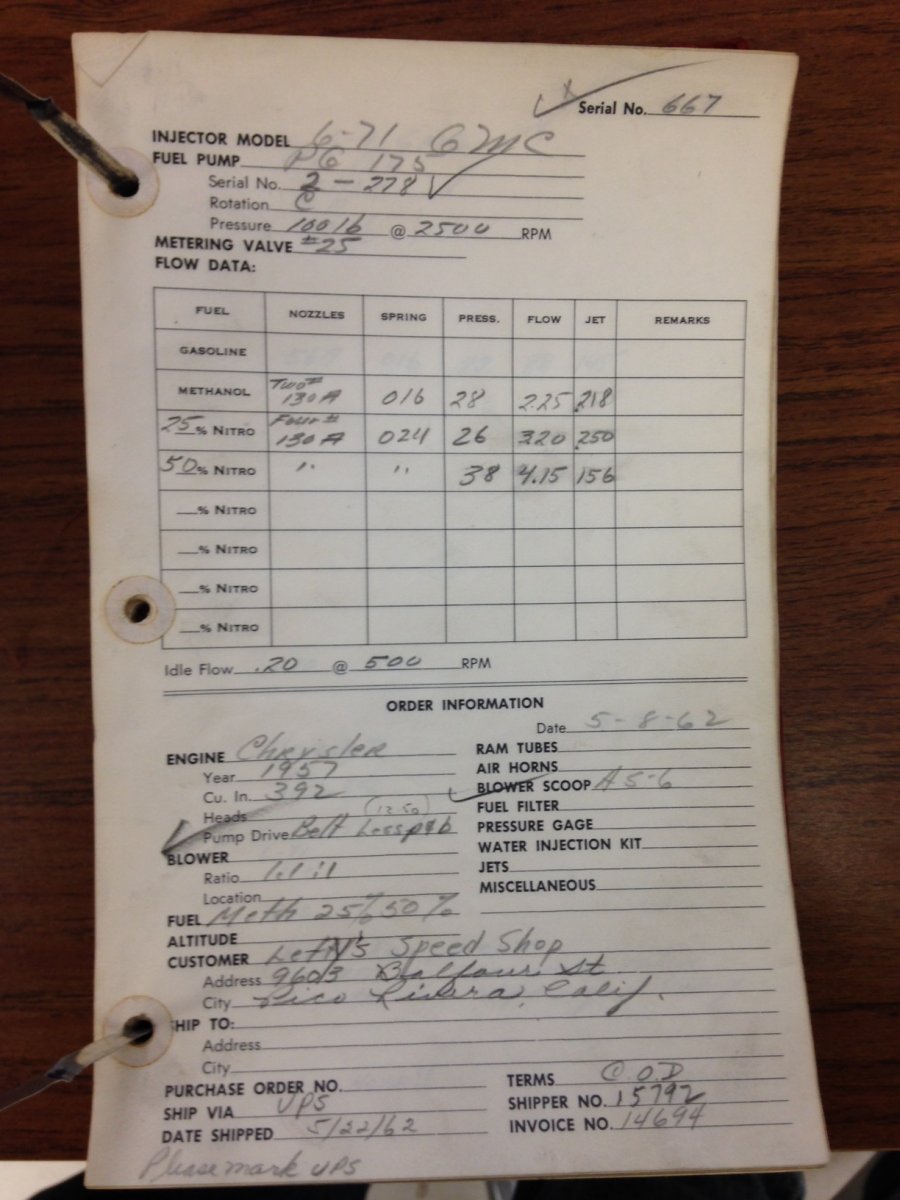 Serial No. 667
INJECTOR MODEL 6-71 GMC
FUEL PUMP PG 175
Serial No. 2 - 278
Rotation C
Pressure 100 lb @ 2500 RPM
METERING VALVE #25
FLOW DATA:
FUEL NOZZLES SPRING PRESS. FLOW JET REMARKS
GASOLINE
METHANOL Two # 130A 016 28 2.25 .218
25% NITRO Four # 130A 024 26 3.20 .250
50% NITRO " " 38 4.15 156
__% NITRO
__% NITRO
__% NITRO
__% NITRO
Idle Flow .20 @ 500 RPM
ORDER INFORMATION
Date 5-8-62
ENGINE Chrysler
Year 1957
Cu. In. 392
Heads (12.50)
Pump Drive Belt Less p&b
BLOWER
Ratio 1.1:1
Location
FUEL Meth 25% 50%
ALTITUDE
RAM TUBES
AIR HORNS
BLOWER SCOOP AS-6
FUEL FILTER
PRESSURE GAGE
WATER INJECTION KIT
JETS
MISCELLANEOUS
CUSTOMER Speed Shop
Address 9603 Balfour St
City Pico Rivera, Calif.
SHIP TO:
Address
City
PURCHASE ORDER NO.
SHIP VIA UPS
DATE SHIPPED 5/22/62
TERMS C.O.D
SHIPPER NO. 15792
INVOICE NO. 14694
Please mark UPS